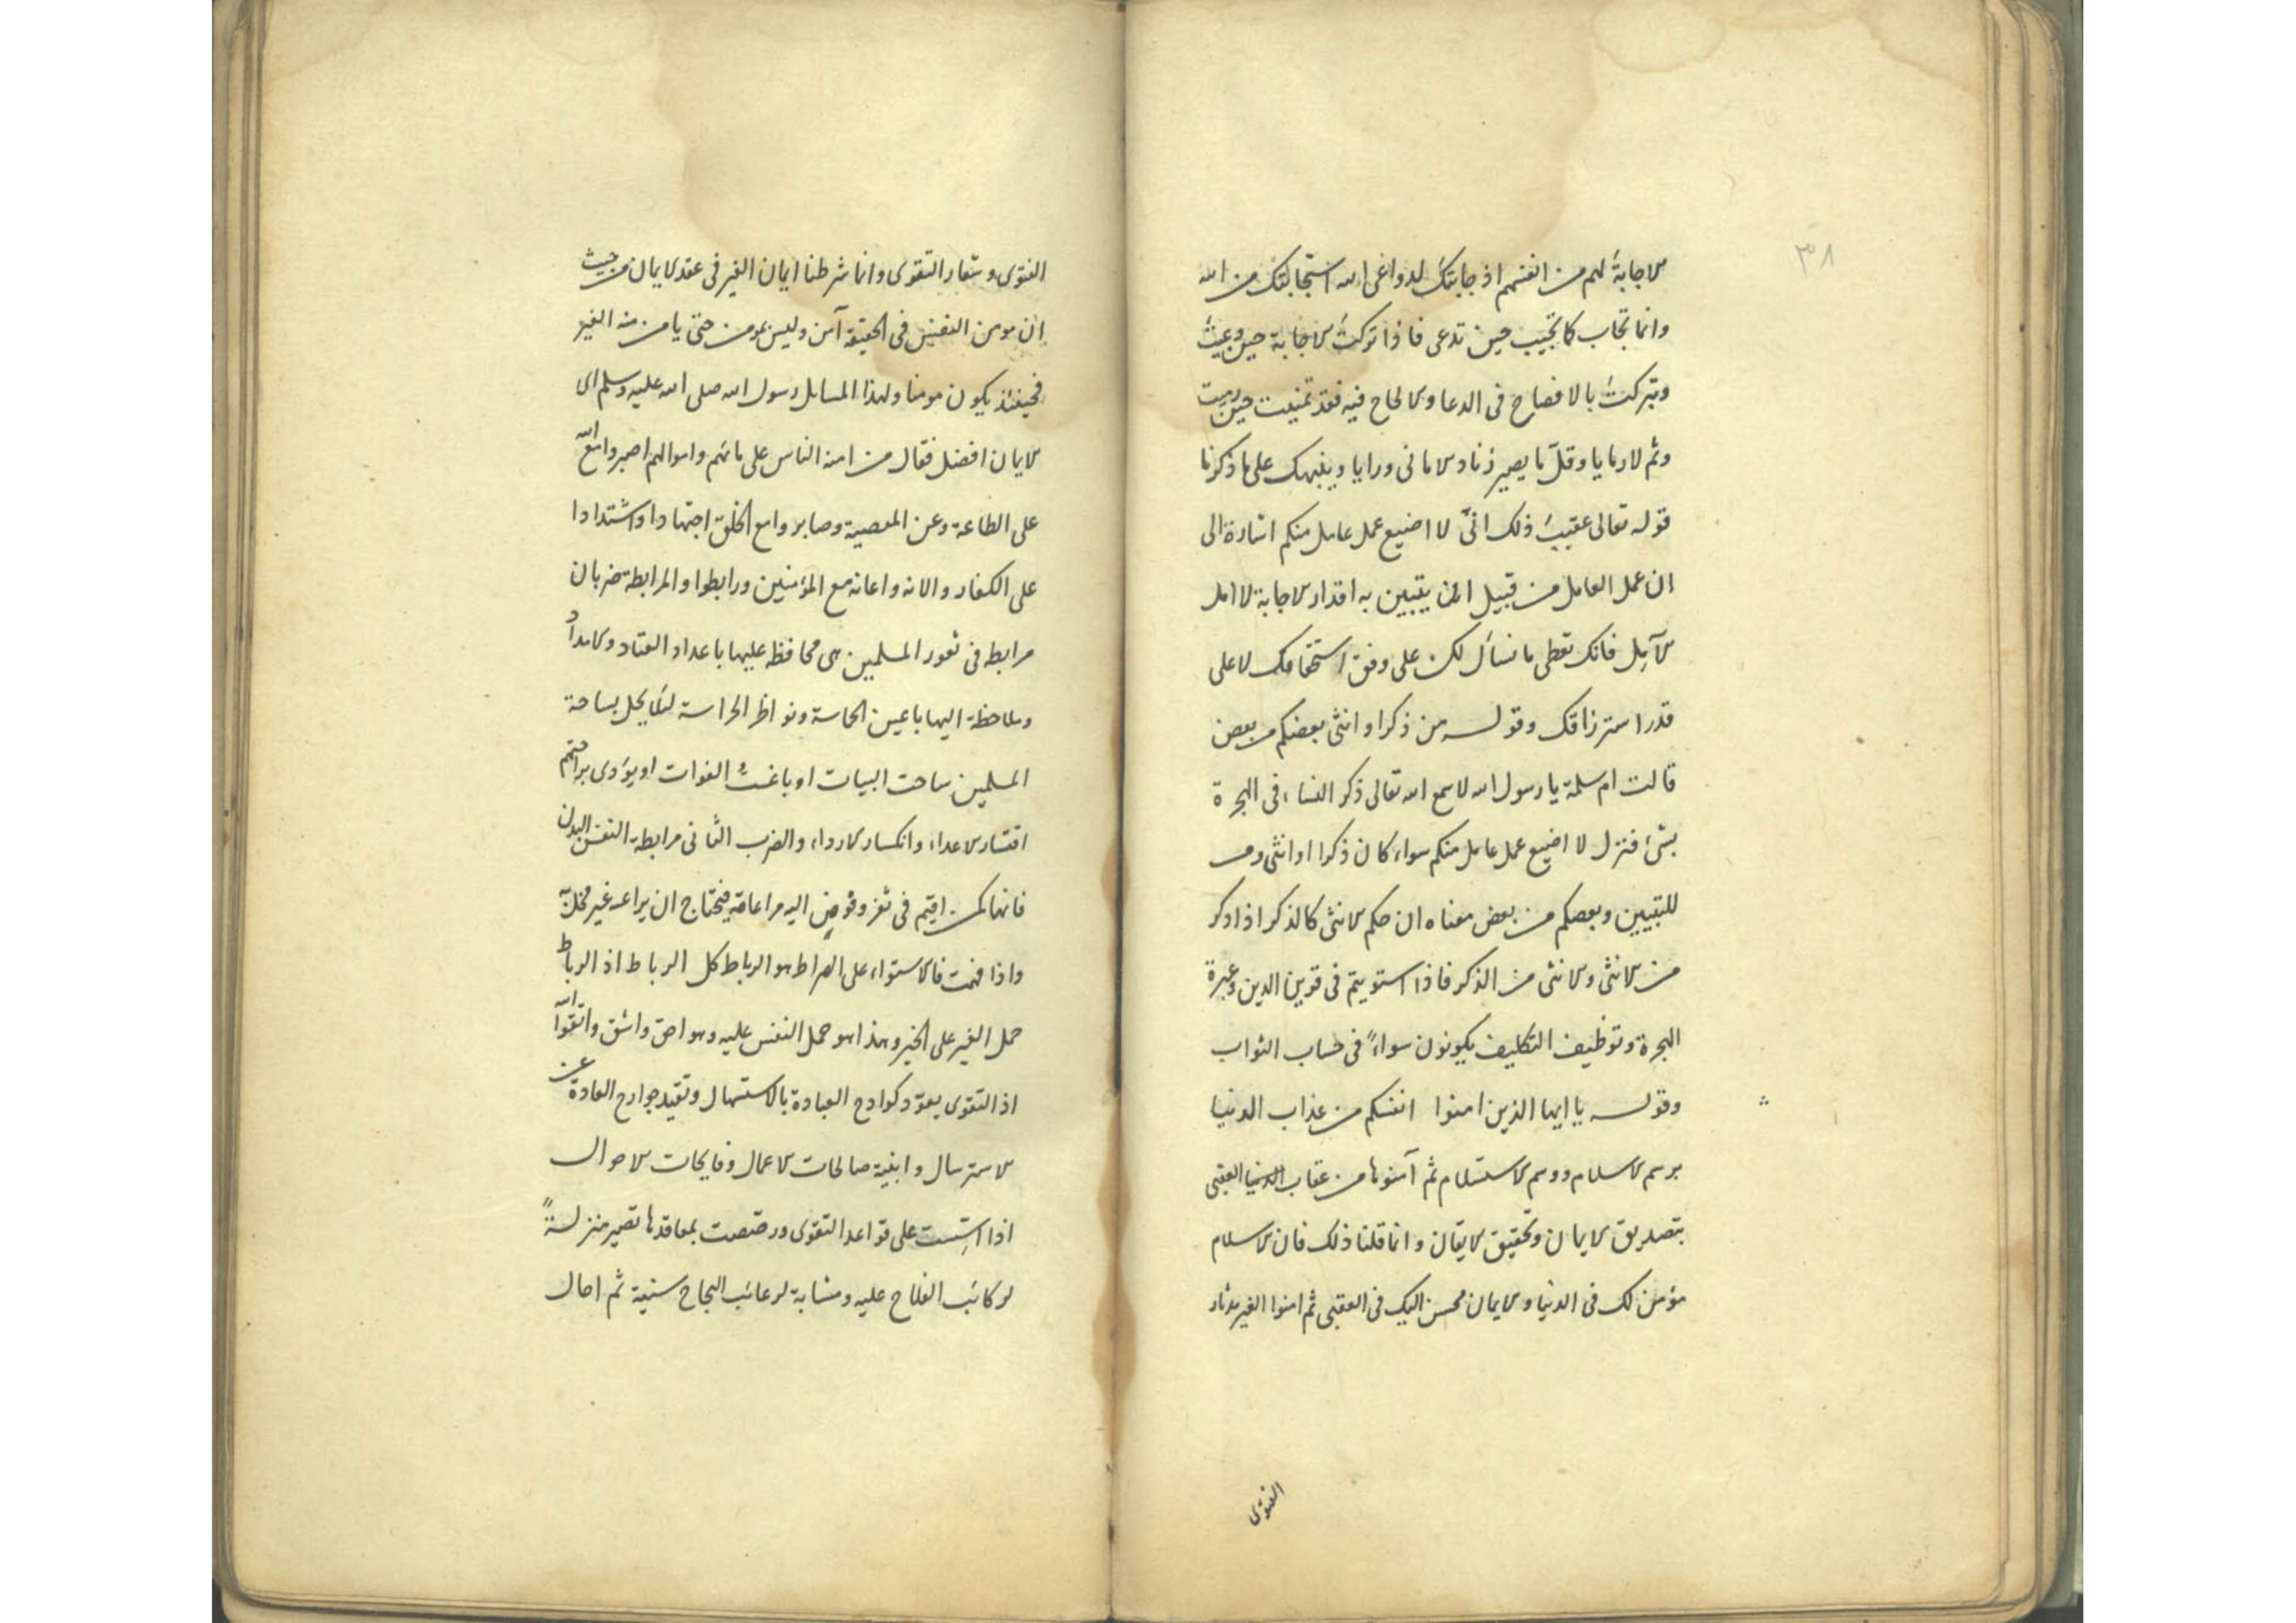 ٣٨
الاجابة لهم من انفسهم اذ جابتك لدواعى الله استجابتك من الله
وانما تجاب كما تجيب حين تدعى فاذا تركت الاجابة حين وعيت
وتبركت بالافصاح فى الدعا والالحاح فيه فقد تمنيت حين رميت
وثم لا رمايا وقل ما يصير زناد الامانى ورايا وينبهك على ما ذكرنا
قوله تعالى عقيب ذلك انى لا اضيع عمل عامل منكم اشارة الى
ان عمل العامل من قبيل ان يتبين به اقدار الاجابة لا امل
الآمل فانك تعطى ما نسأل لك على وفق استحقاقك لا على
قدر استرزاقك وقوله من ذكر او انثى بعضكم من بعض
قالت ام سلمة يا رسول الله لا سمع الله تعالى ذكر النساء فى الهجرة
بشئ فنزل لا اضيع عمل عامل منكم سواء كان ذكرا او انثى ومن
للتبيين وبعضكم من بعض معناه ان حكم الانثى كالذكر اذ اذكر
من الانثى والانثى من الذكر فاذا استويتم فى قوين الدين وعبرة
الهجرة وتوظيف التكليف يكونون سواءً فى حساب الثواب
وقوله يا ايها الذين امنوا انفسكم من عذاب الدنيا
برسم الاسلام ووسم الاستسلام ثم آمنوها من عقاب العقبى
بتصديق الايمان وتحقيق الايقان وانما قلنا ذلك فان الاسلام
مؤمن لك فى الدنيا والايمان محسن اليك فى العقبى ثم امنوا الغير بدثار
الفتوى
الفتوى وشعار التقوى وانما شرطنا ايمان الغير فى عقد الايمان من حيث
ان مومن النفس فى الحقيقة آمن وليس بمومن حتى يامن منه الغير
فحينئذ يكون مومنا ولهذا المسايل رسول الله صلى الله عليه وسلم اى
الايمان افضل فقال من امنه الناس على مائهم واموالهم اصبروا مع الله
على الطاعة وعن المعصية وصابروا مع الخلق اجتهادا واشتدادا
على الكفار والانه واعانه مع المؤمنين ورابطوا والمرابطة ضربان
مرابطه فى ثغور المسلمين هى محافظه عليها باعداد العتاد والامداد
وملاحظة اليها باعين الحاسة ونواظر الحراسة لئلا يحل بساحة
المسلمين ساحت البيات او باغت الفوات او يؤدى براحتهم
اقتسار الاعداء وانكسار الارداء والضرب الثانى مرابطة النفس البدن
فانها كمن اقيم فى ثغر وفوض اليه مراعاته فيحتاج ان يراعه غير مخل به
واذا فهمت فالاستواء على الصراط هو الرباط كل الرباط اذ الرباط
حمل الغير على الخير وهذا هو حمل النفس عليه وهو احق واشق واتقوا الله
اذ التقوى يعود كوادح العبادة بالاستهال وتقيد جوارح العادة عن
الاسترسال وابنية صالحات الاعمال وفايحات الاحوال
اذا اسست على قواعد التقوى ورصصت بمعاقدها تصير منزلةً
لركائب الفلاح عليه ومشابة لرعائب النجاح سنية ثم احال